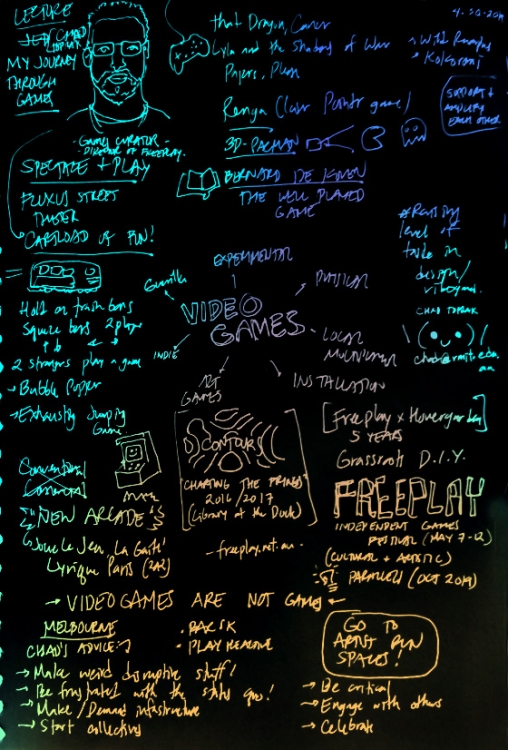 LECTURE
JED CHAD TOPRAK
MY JOURNEY
THROUGH
GAMES
- GAMES CURATOR -
DIRECTOR OF FREEPLAY.
SPECTACLE + PLAY
FLUXUS STREET
THEATER
CARTLOAD OF FUN!
Hold on train bars
Square bars 2 player
2 strangers play a game
Bubble Popper
Exhausting Jumping
Game
that Dragon, Cancer
Lyla and the Shadow of War
Papers, Please
Renga (laser pointer game)
3D-PACMAN
BERNARD DE KOVEN
THE WELL PLAYED
GAME
4.30.2019
Wild Rumpus
Kokoromi
SUPPORT +
AMPLIFY
EACH OTHER
#Raising
level of
taste in
design/
videogames.
CHAD TOPRAK
chad@rmit.edu.
au
EXPERIMENTAL
PHYSICAL
Guerilla
VIDEO
GAMES
LOCAL
MULTIPLAYER
INDIE
ART
GAMES
INSTALLATION
CONTOURS
"CHARTING THE FRINGES"
2016/2017
(Library at the Dock)
- freeplay.net.au -
[Freeplay x Hovergarden]
5 YEARS
Grassroots D.I.Y.
FREEPLAY
INDEPENDENT GAMES
FESTIVAL (MAY 7-12)
(CULTURAL + ARTISTIC)
PARALLELS (OCT 2019)
Conventional
Commercial
NEW ARCADE
Joue le Jeu, La Gaîté
Lyrique Paris
→ VIDEO GAMES ARE NOT GAMES ←
MELBOURNE
• BAR SK
• PLAY REACTIVE
CHAD'S ADVICE:
→ Make weird disruptive stuff!
→ Be frustrated with the status quo!
→ Make/Demand infrastructure
→ Start collectives
GO TO
ARTIST RUN
SPACES!
→ Be critical
→ Engage with others
→ Celebrate